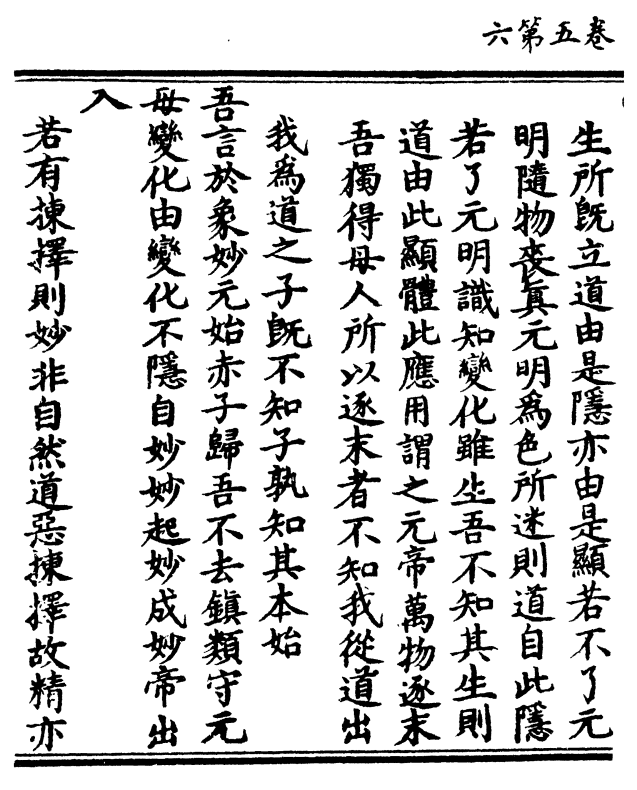 卷五第六
生所既立道由是隱亦由是顯若不了元
明隨物喪眞元明爲色所迷則道自此隱
若了元明識知變化雖生吾不知其生則
道由此顯體此應用謂之元帝萬物逐末
吾獨得母人所以逐末者不知我從道出
我爲道之子既不知子孰知其本始
吾言於象妙元始赤子歸吾不去鎭類守元
母變化由變化不隱自妙妙起妙成妙帝出
入
若有揀擇則妙非自然道惡揀擇故精亦